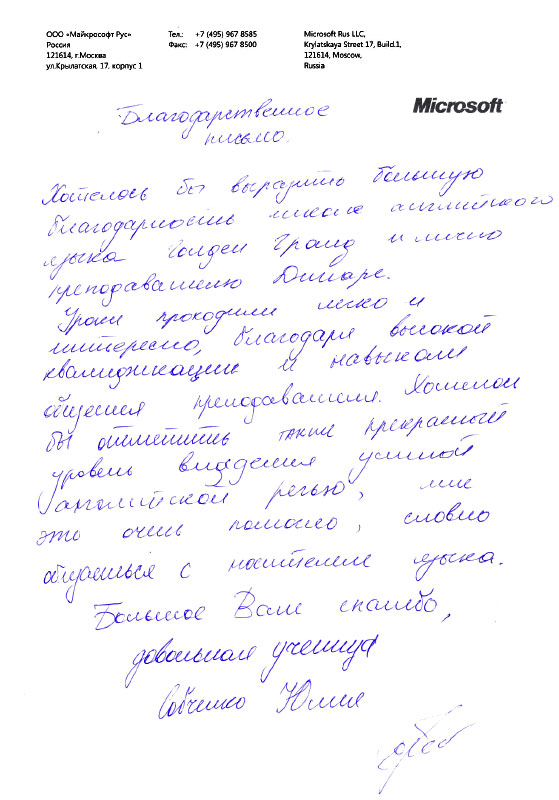 ООО «Майкрософт Рус»
Россия
121614, г.Москва
ул.Крылатская, 17, корпус 1
Тел.: +7 (495) 967 8585
Факс: +7 (495) 967 8500
Microsoft Rus LLC,
Krylatskaya Street 17, Build.1,
121614, Moscow,
Russia
Microsoft
Благодарственное
письмо.
Хотелось бы выразить большую
благодарность школе английского
языка Голден Гранд и лично
преподавателю Динаре.
Уроки проходили легко и
интересно, благодаря высокой
квалификации и навыкам
общения преподавателя. Хотелось
бы отметить также прекрасный
уровень владения устной
английской речью, мне
это очень помогло, словно
общаешься с носителем языка.
Большое Вам спасибо,
довольная ученица
Собченко Юлия